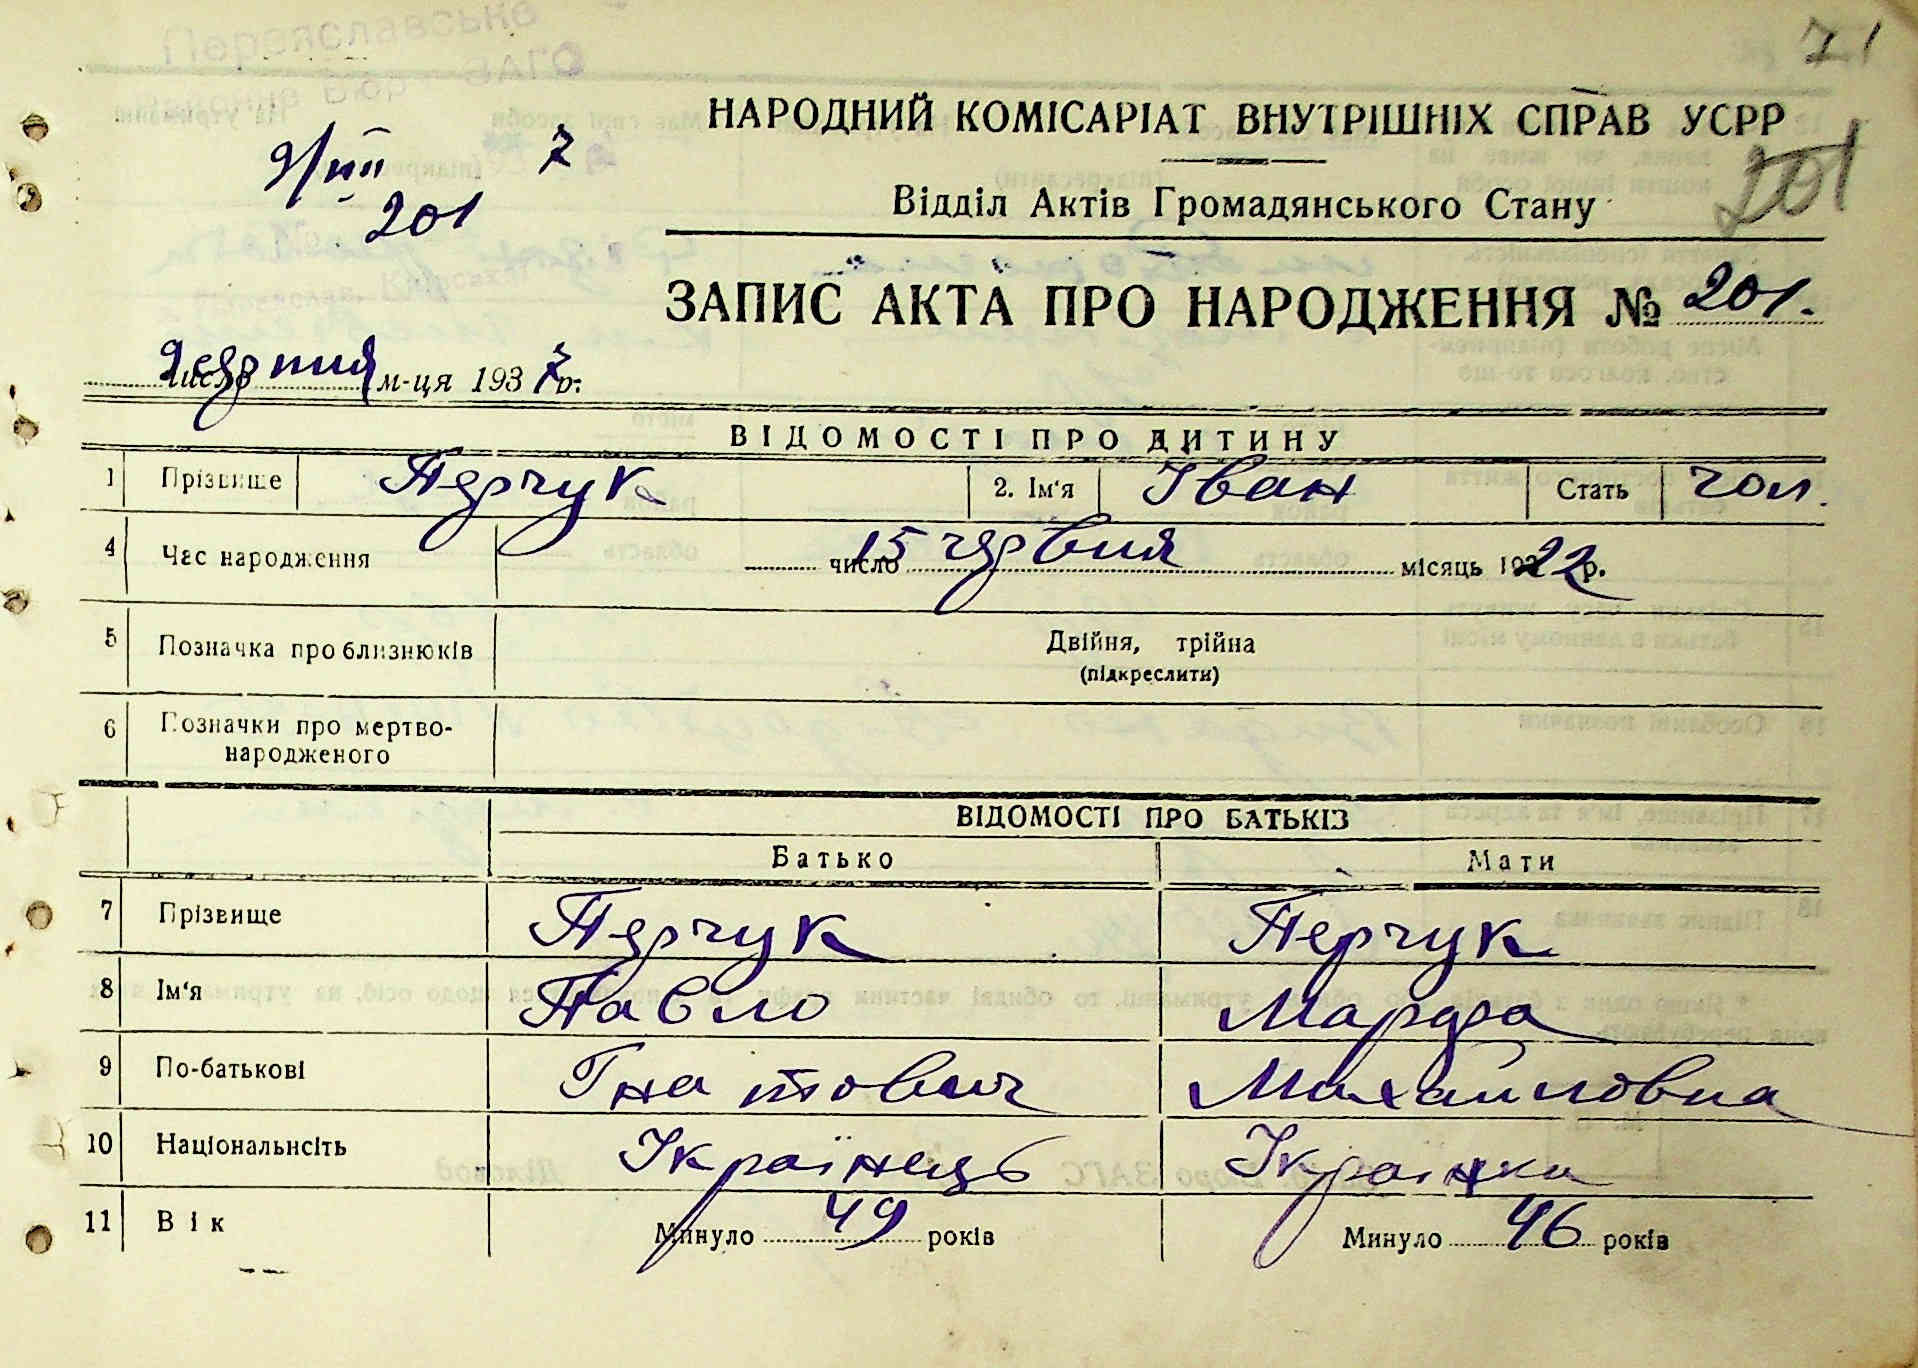 Переяславське
ЗАГС
71
НАРОДНИЙ КОМІСАРІАТ ВНУТРІШНІХ СПРАВ УСРР
9/VIII 7
201
201
Відділ Актів Громадянського Стану
ЗАПИС АКТА ПРО НАРОДЖЕННЯ № 201.
9 серпня число м-ця 1937 р.
ВІДОМОСТІ ПРО ДИТИНУ
1 Прізвище Перчук 2. Ім‘я Іван Стать чол.
4 Час народження 15 число червня місяць 1922 р.
5 Позначка про близнюків Двійня, трійна
(підкреслити)
6 Позначки про мертво-
народженого
ВІДОМОСТІ ПРО БАТЬКІВ
Батько Мати
7 Прізвище Перчук Перчук
8 Ім‘я Павло Марфа
9 По-батькові Гнатович Михайловна
10 Національнсіть Українець Українка
11 Вік Минуло 49 років Минуло 46 років